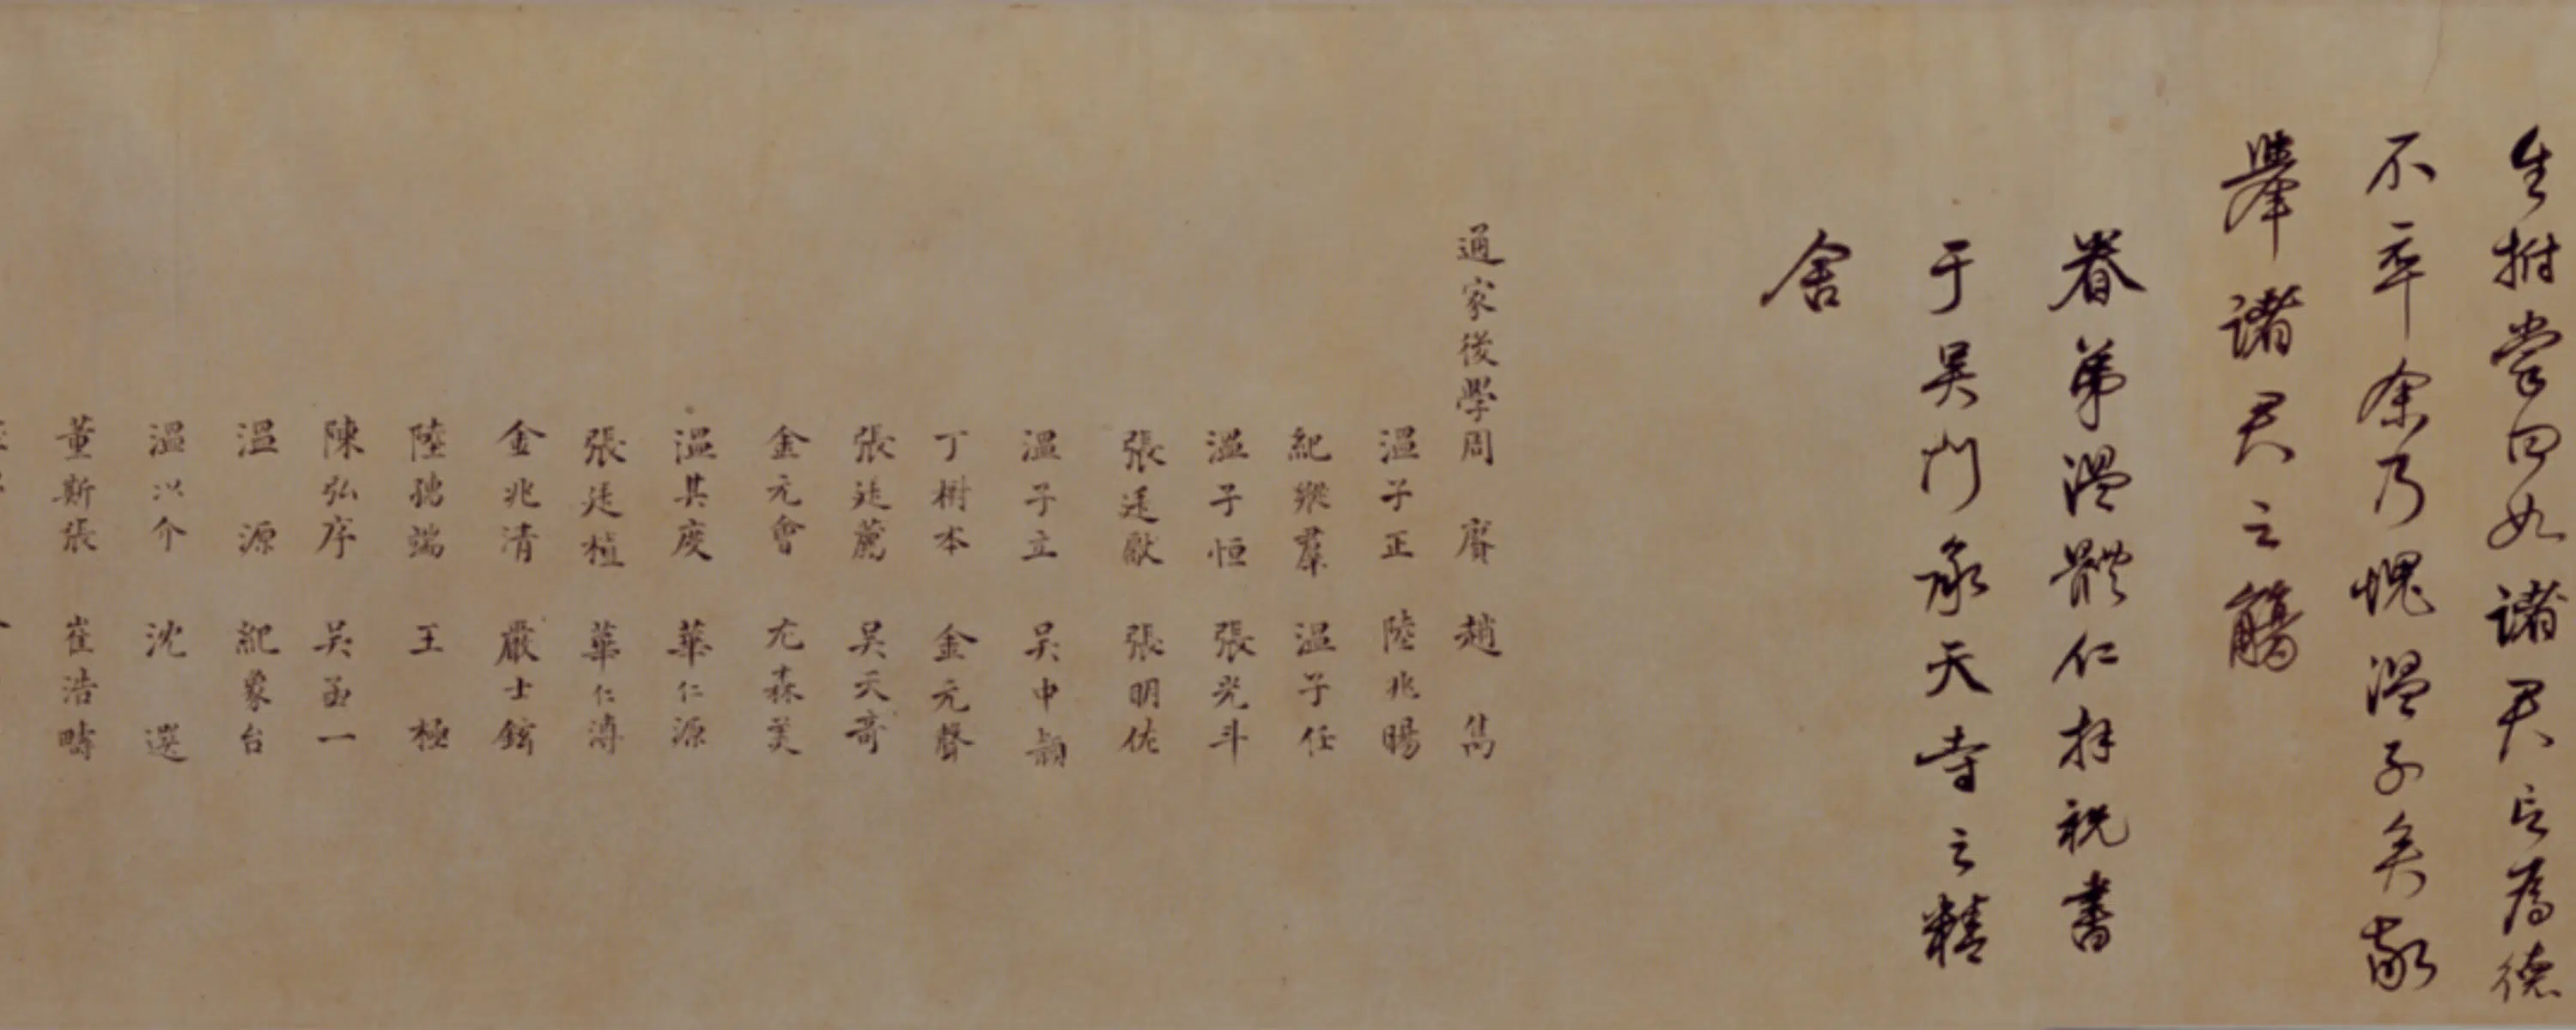 生拊掌曰如諸君言為德
不卒余乃愧溫子矣敬
舉諸君之觴
眷弟溫體仁拜祝書
于吳門承天寺之精
舍
通家後學周賡 趙雋
溫子正 陸兆暘
紀羣 溫子任
溫子恒 張光斗
張廷猷 張明佐
溫子立 吳申穎
丁樹本 金元聲
張廷薦 吳天奇
金元會 尤森美
溫其度 華仁源
張廷植 華仁溥
金兆清 嚴士鉉
陸端 王極
陳弘序 吳函一
溫源 紀象台
溫以介 沈選
董斯張 崔浩疇